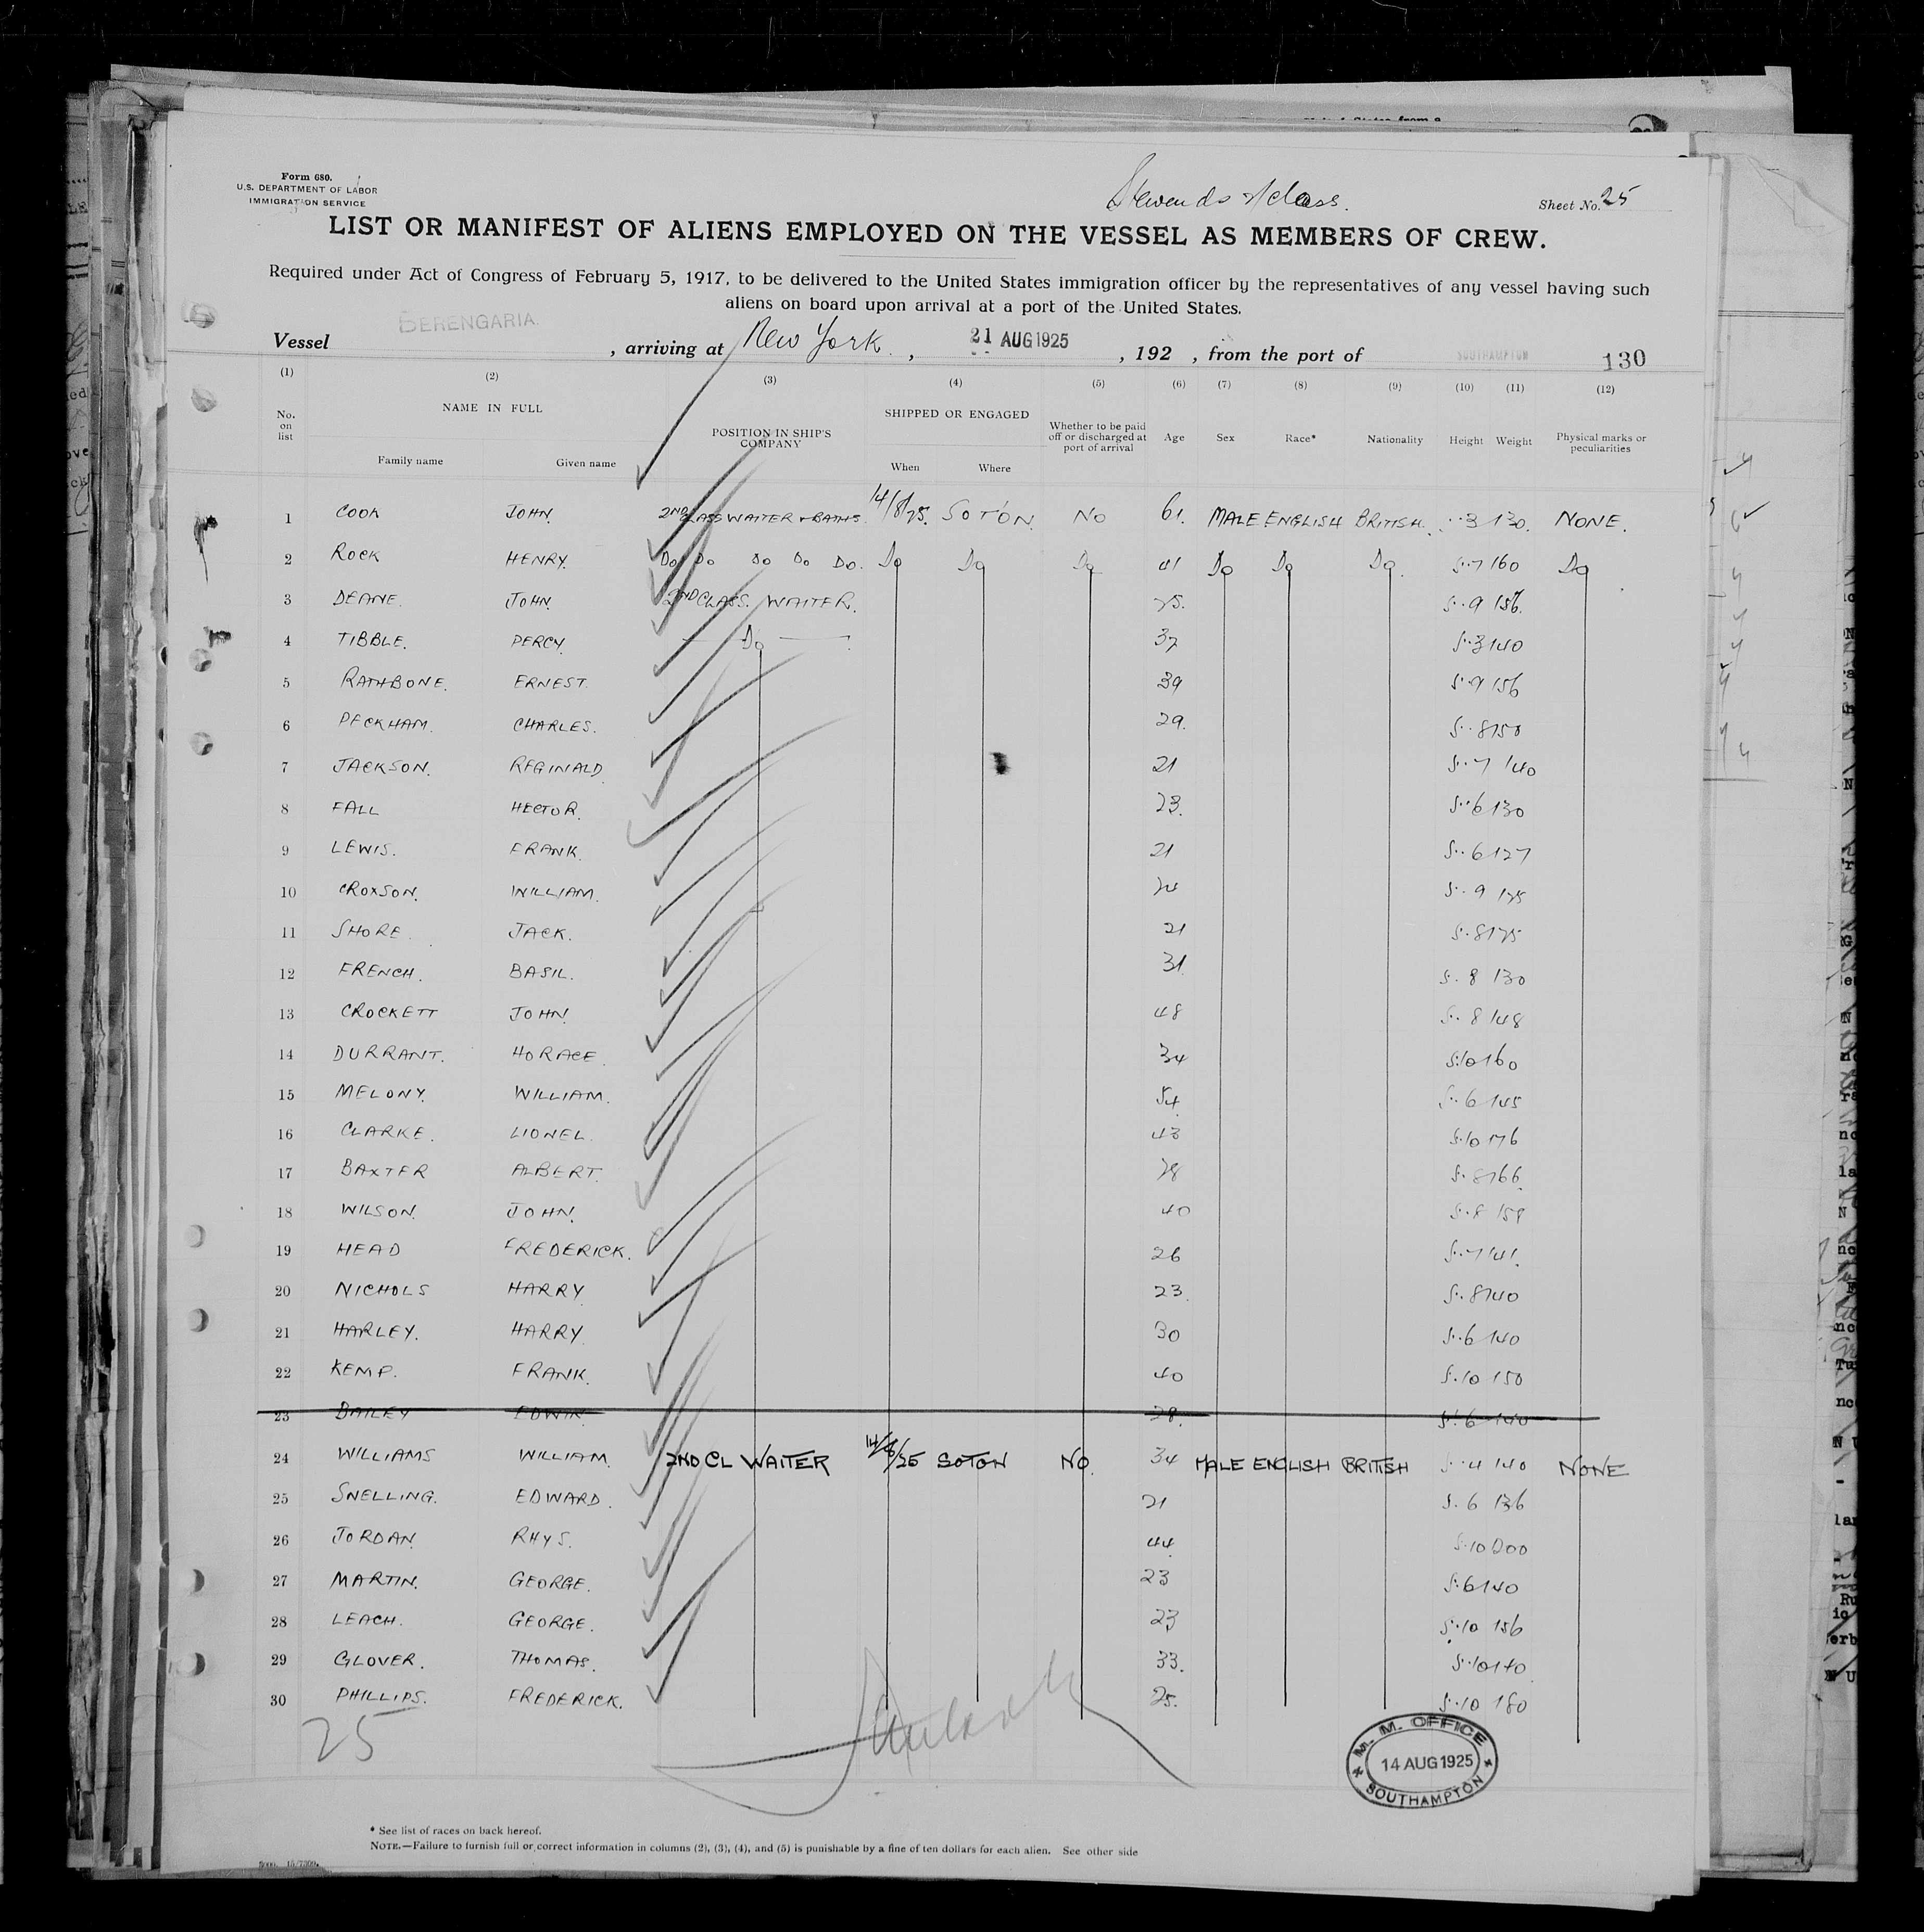 Form 680.
U.S. DEPARTMENT OF LABOR
IMMIGRATION SERVICE
Stewards class.
Sheet No. 25
LIST OR MANIFEST OF ALIENS EMPLOYED ON THE VESSEL AS MEMBERS OF CREW.
Required under Act of Congress of February 5, 1917, to be delivered to the United States immigration officer by the representatives of any vessel having such
aliens on board upon arrival at a port of the United States.
Vessel BERENGARIA , arriving at New York , 21 AUG 1925 , 192 , from the port of SOUTHAMPTON 130
(1) (2) (3) (4) (5) (6) (7) (8) (9) (10) (11) (12)
No. on list NAME IN FULL Family name Given name POSITION IN SHIP'S COMPANY SHIPPED OR ENGAGED When Where Whether to be paid off or discharged at port of arrival Age Sex Race* Nationality Height Weight Physical marks or peculiarities
1 COOK JOHN. 2ND CLASS WAITER & BATHS. 14/8/25. SOTON. NO 61. MALE ENGLISH BRITISH. 3 130. NONE.
2 ROCK HENRY. Do Do Do Do Do. Do Do Do 41 Do Do Do. 5.7 160 Do
3 DEANE. JOHN. 2ND CLASS. WAITER. 25. 5..9 156.
4 TIBBLE. PERCY. Do 37 5..3 140
5 RATHBONE. ERNEST. 39 5.9 156
6 PECKHAM. CHARLES. 29. 5..8 150
7 JACKSON. REGINALD. 21 5..7 140
8 FALL HECTOR. 23. 5..6 130
9 LEWIS. FRANK. 21 5..6 127
10 CROXSON. WILLIAM. 24 5..9 135
11 SHORE. JACK. 21 5.8 135
12 FRENCH. BASIL. 31 5.8 130
13 CROCKETT JOHN. 48 5..8 148
14 DURRANT. HORACE. 34 5.10 160
15 MELONY. WILLIAM. 54. 5..6 145
16 CLARKE. LIONEL. 43 5.10 176
17 BAXTER ALBERT. 28 5.8 166.
18 WILSON. JOHN. 40 5.8 158
19 HEAD FREDERICK. 26 5..7 141.
20 NICHOLS HARRY. 23. 5..8 140
21 HARLEY. HARRY. 30 5..6 140
22 KEMP. FRANK. 40 5.10 150
23 BAILEY EDWIN. 28. 5..6 140
24 WILLIAMS WILLIAM. 2ND CL WAITER 14/8/25 SOTON NO. 34 MALE ENGLISH BRITISH 5..4 140 NONE
25 SNELLING. EDWARD. 21 5.6 136
26 JORDAN. RHYS. 44. 5.10 200
27 MARTIN. GEORGE. 23 5.6 140
28 LEACH. GEORGE. 23 5.10 156
29 GLOVER. THOMAS. 33. 5.10 170
30 PHILLIPS. FREDERICK. 25. 5.10 180
25
M. M. OFFICE
14 AUG 1925
SOUTHAMPTON
* See list of races on back hereof.
NOTE.—Failure to furnish full or correct information in columns (2), (3), (4), and (5) is punishable by a fine of ten dollars for each alien. See other side